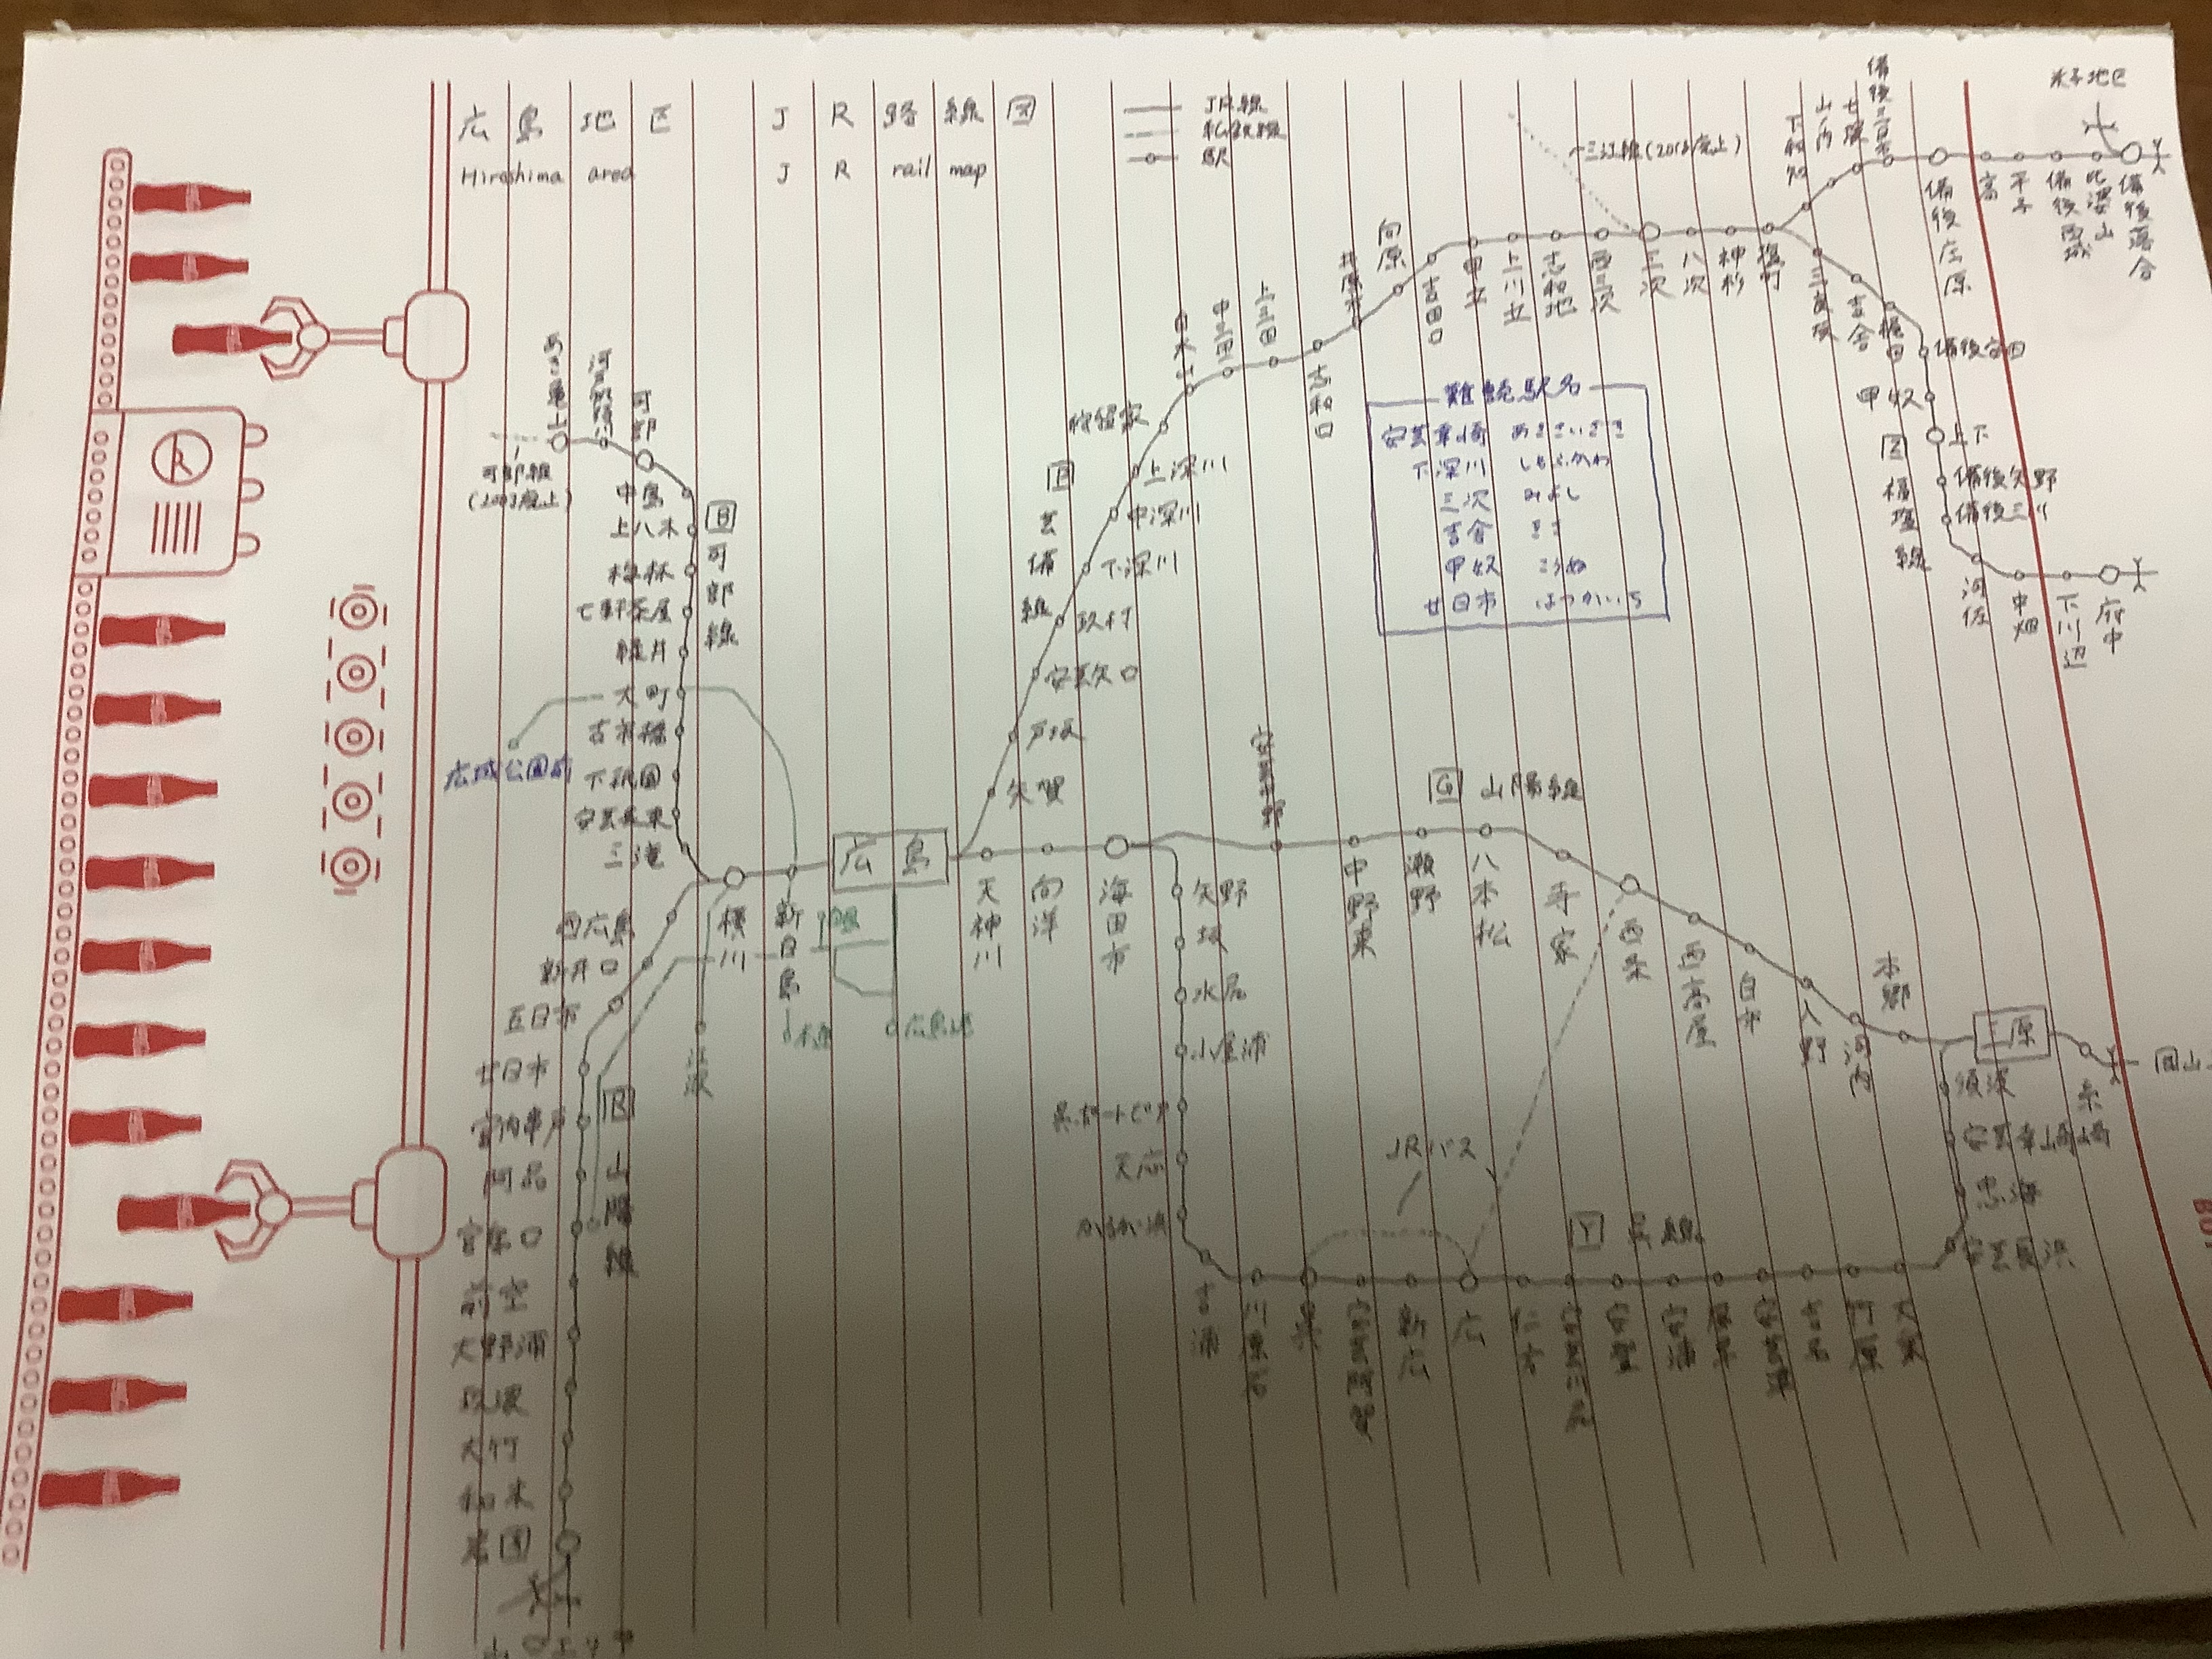 広島地区 JR路線図
Hiroshima area JR rail map
JR線
私鉄線
駅
三江線(2018廃止)
米子地区
備後落合
比婆山
備後西城
平子
高
備後庄原
備後三日市
七塚
山ノ内
下和知
塩町
神杉
八次
三次
西三次
志和地
上川立
甲立
吉田口
向原
井原市
志和口
上三田
中三田
白木山
狩留家
上深川
中深川
下深川
玖村
安芸矢口
戸坂
矢賀
E 芸備線
三良坂
吉舎
梶田
備後安田
甲奴
上下
備後矢野
備後三川
河佐
中畑
下川辺
府中
Z 福塩線
難読駅名
安芸幸崎 あきさいざき
下深川 しもふかわ
三次 みよし
吉舎 きさ
甲奴 こうぬ
廿日市 はつかいち
可部線
(2003廃止)
あき亀山
河戸帆待川
可部
中島
上八木
梅林
七軒茶屋
緑井
大町
古市橋
下祇園
安芸長束
三滝
B 可部線
広域公園前
横川
新白島
広島
天神川
向洋
海田市
安芸中野
中野東
瀬野
八本松
寺家
西条
西高屋
白市
入野
河内
本郷
三原
糸崎
岡山
G 山陽線
西広島
新井口
五日市
廿日市
宮内串戸
阿品
宮島口
前空
大野浦
玖波
大竹
和木
岩国
R 山陽線
江波
本通
広島港
矢野
坂
水尻
小屋浦
呉ポートピア
天応
かるが浜
吉浦
川原石
呉
安芸阿賀
新広
広
仁方
安芸川尻
安登
安浦
風早
安芸津
吉名
竹原
大乗
安芸長浜
忠海
安芸幸崎
須波
Y 呉線
JRバス